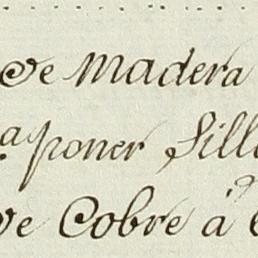 de madera
a poner Sill
de Cobre á